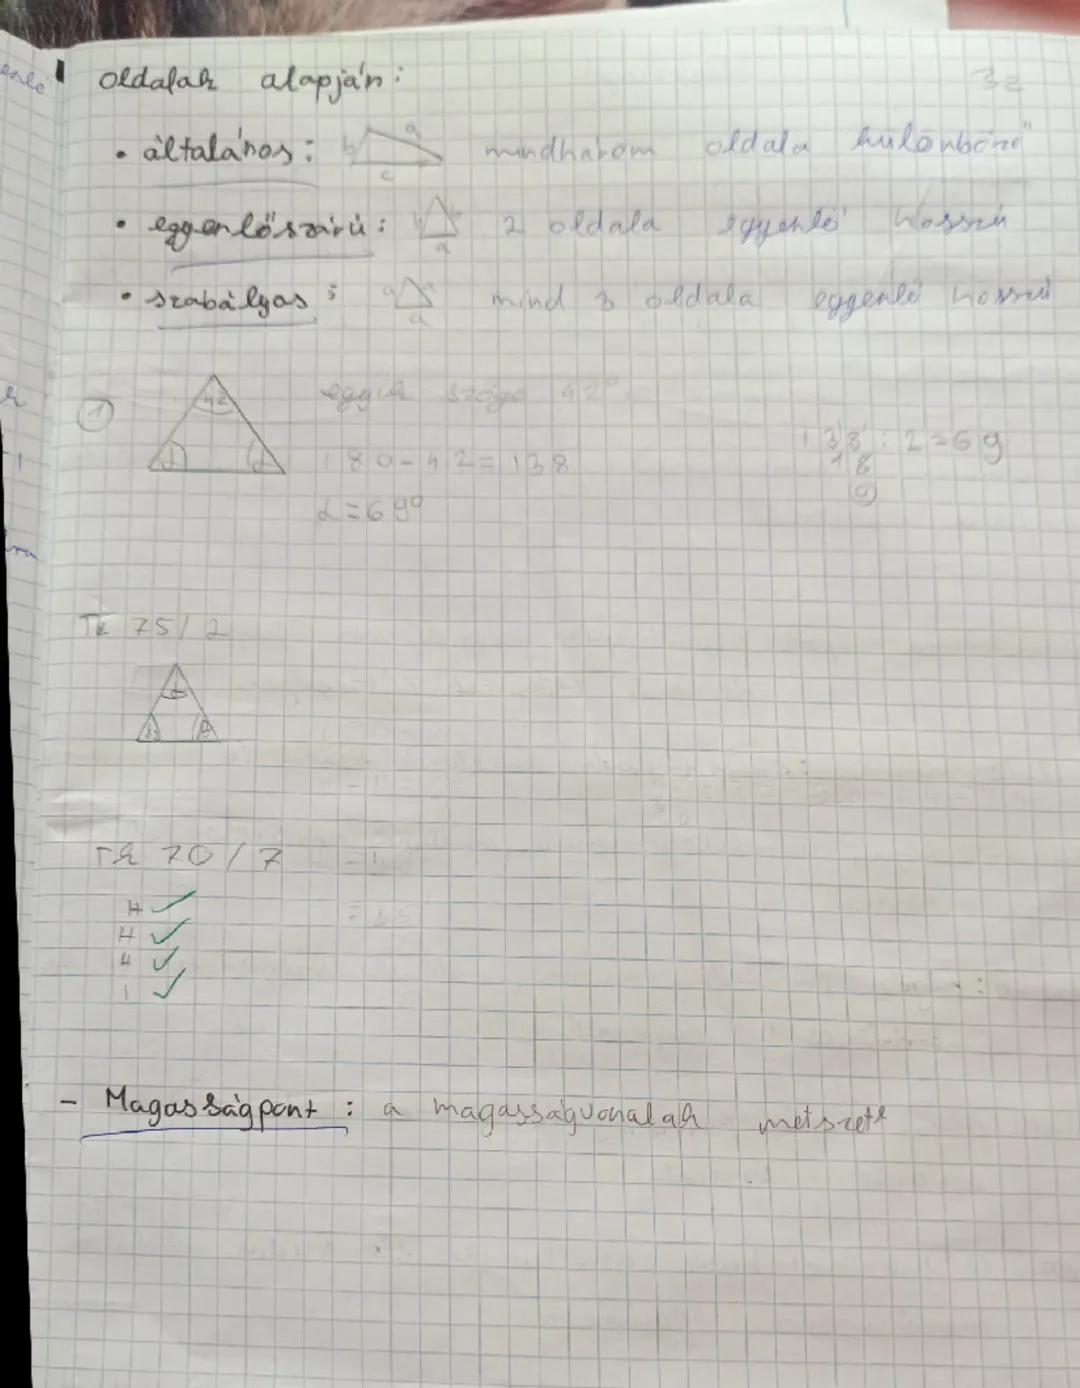 oldalak alapján:
32
• általános: b a c mindhárom oldala különböző
• egyenlőszárú: a 2 oldala egyenlő hosszú
• szabályos: a a mind 3 oldala egyenlő hosszú
① 42 α α egyik szöge 42°
180-42=138
138:2=69
18
0
α=69°
Tk 75/2
Tk 70/7
H ✓
H ✓
H ✓
I ✓
- Magasságpont: a magasságvonalak metszete